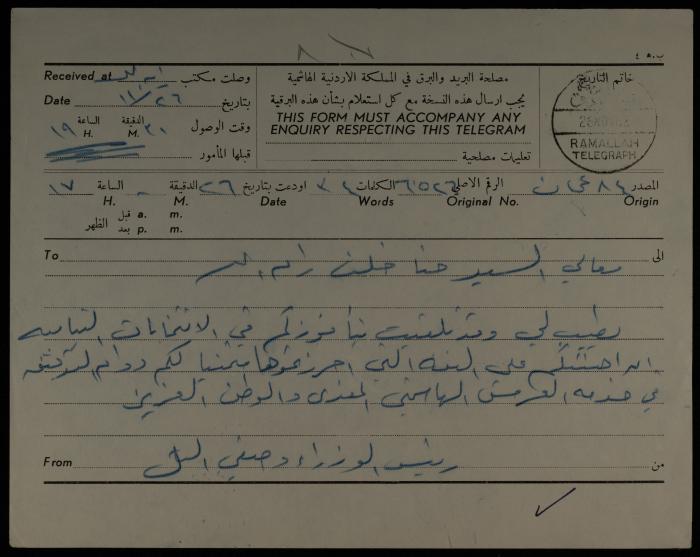 ب.هـ ٤
Received at وصلت مكتب مصلحة البريد والبرق في المملكة الاردنية الهاشمية خاتم التاريخ
Date ٢٦ / ١١ بتاريخ يجب ارسال هذه النسخة مع كل استعلام بشأن هذه البرقية
الساعة ١٩ الدقيقة ٣٠ وقت الوصول THIS FORM MUST ACCOMPANY ANY
H. M. ENQUIRY RESPECTING THIS TELEGRAM
RAMALLAH
TELEGRAPH
قبلها المأمور تعليمات مصلحية
المصدر ٨٤ عمان الرقم الاصلي الكلمات اودعت بتاريخ ٢٦ الدقيقة - الساعة ١٧
H. M. Date Words Original No. Origin
a. m. قبل
p. m. بعد الظهر
To الى
معالي السيد حنا خلف رام الله
يطيب لي وقد تلقيت نبأ فوزكم في الانتخابات النيابية
ان اهنئكم على الثقة التي احرزتموها متمنيا لكم دوام التوفيق
في خدمة العرش الهاشمي المفدى والوطن العزيز
From رئيس الوزراء وصفي التل من